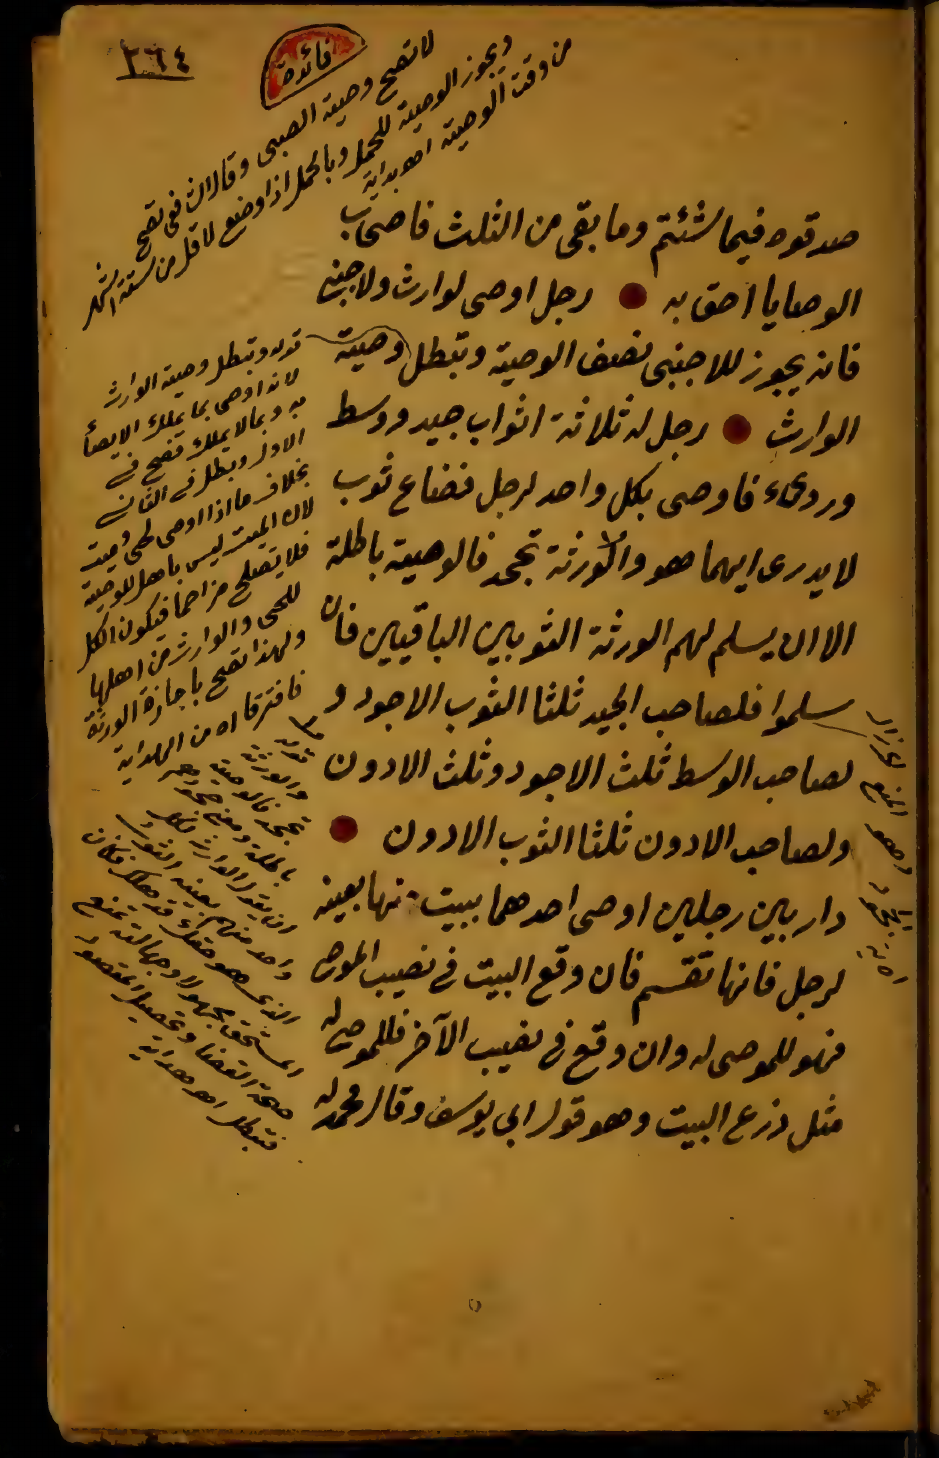 ٣٦٤
فائدة
لا تصح وصية الصبي وقال الشافعي تصح
ويجوز الوصية للحمل وبالحمل اذا وضع لاقل من ستة اشهر
من وقت الوصية اهـ بداية
صدقوه فيما شئتم وما بقى من الثلث فاصحاب
الوصايا احق به رجل اوصى لوارث ولاجنبي
فانه يجوز للاجنبى نصف الوصية وتبطل وصية
الوارث رجل له ثلاثة اثواب جيد ووسط
وردىء فاوصى بكل واحد لرجل فضاع ثوب
لا يدرى ايهما هو والورثة تجحد فالوصية باطلة
الا ان يسلم لهم الورثة الثوبين الباقيين فان
سلموا فلصاحب الجيد ثلثا الثوب الاجود و
لصاحب الوسط ثلث الاجود وثلث الادون
ولصاحب الادون ثلثا الثوب الادون
دار بين رجلين اوصى احدهما ببيت منها بعينه
لرجل فانها تقسم فان وقع البيت فى نصيب الموصى
فهو للموصى له وان وقع فى نصيب الآخر فللموصى له
مثل ذرع البيت وهو قول ابى يوسف وقال محمد له
قوله وتبطل وصية الوارث
لانه اوصى بما يملك الايصاء
به وبما لا يملك فصح فى
الاول وبطل فى الثانى
بخلاف ما اذا اوصى لحى وميت
لان الميت ليس باهل للوصية
فلا يصلح مزاحما فيكون الكل
للحى والوارث من اهلها
ولهذا تصح باجازة الورثة
فافترقا اه من الهداية
قوله
والورثة
تجحد فالوصية
باطلة ومعنى جحودهم
ان يقول الوارث لكل
واحد منهم بعينه الثوب
الذى هو حقك قد هلك فكان
المستحق مجهولا وجهالته تمنع
صحة القضاء وتحصيل المقصود
فتبطل اهـ هداية